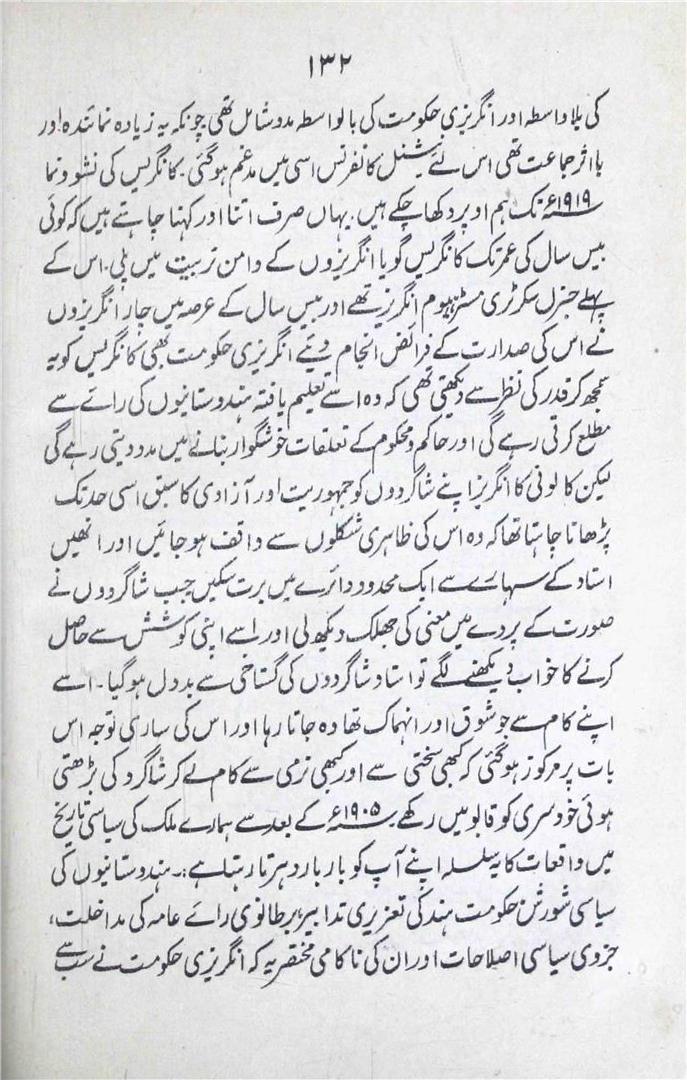 ۱۳۲
کی بلاواسطہ اور انگریزی حکومت کی بالواسطہ مدد شامل تھی چونکہ یہ زیادہ نمائندہ اور
بااثر جماعت تھی اس لئے نیشنل کانفرنس اسی میں مدغم ہوگئی۔ کانگریس کی نشوونما
۱۹۱۹ء تک ہم اوپر دکھا چکے ہیں۔ یہاں صرف اتنا اور کہنا چاہتے ہیں کہ کوئی
بیس سال کی عمر تک کانگریس گویا انگریزوں کے دامن تربیت میں پلی۔ اس کے
پہلے جنرل سکرٹری مسٹر ہیوم انگریز تھے اور بیس سال کے عرصہ میں چار انگریزوں
نے اس کی صدارت کے فرائض انجام دیئے انگریزی حکومت بھی کانگریس کو یہ
سمجھ کر قدر کی نظر سے دیکھتی تھی کہ وہ اسے تعلیم یافتہ ہندوستانیوں کی رائے سے
مطلع کرتی رہے گی اور حاکم و محکوم کے تعلقات خوشگوار بنانے میں مدد دیتی رہے گی
لیکن کالونی کا انگریز اپنے شاگردوں کو جمہوریت اور آزادی کا سبق اسی حد تک
پڑھانا چاہتا تھا کہ وہ اس کی ظاہری شکلوں سے واقف ہو جائیں اور انھیں
استاد کے سہارے سے ایک محدود دائرے میں برت سکیں جب شاگردوں نے
صورت کے پردے میں معنی کی جھلک دیکھ لی اور اسے اپنی کوشش سے حاصل
کرنے کا خواب دیکھنے لگے تو استاد شاگردوں کی گستاخی سے بددل ہوگیا۔ اسے
اپنے کام سے جو شوق اور انہماک تھا وہ جاتا رہا اور اس کی ساری توجہ اس
بات پر مرکوز ہوگئی کہ کبھی سختی سے اور کبھی نرمی سے کام لے کر شاگرد کی بڑھتی
ہوئی خودسری کو قابو میں رکھے۔ ۱۹۰۵ء کے بعد سے ہمارے ملک کی سیاسی تاریخ
میں واقعات کا یہ سلسلہ اپنے آپ کو بار بار دہراتا رہتا ہے:۔ ہندوستانیوں کی
سیاسی شورش حکومت ہند کی تعزیری تدابیر، برطانوی رائے عامہ کی مداخلت،
جزوی سیاسی اصلاحات اور ان کی ناکامی مختصر یہ کہ انگریزی حکومت نے سب سے